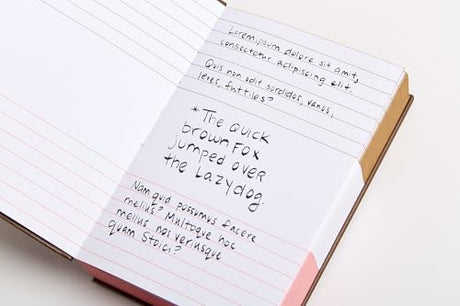 Loremipsum dolore sit amit,
consectetur adipiscing elit.
Quis non odit sordidos, vanos,
leves, futtiles?
*The quick
brown Fox
jumped over
the Lazy dog.
Nam quid possumus facere
melius? Multoque hoc
melius nos veriusque
quam Stoici?